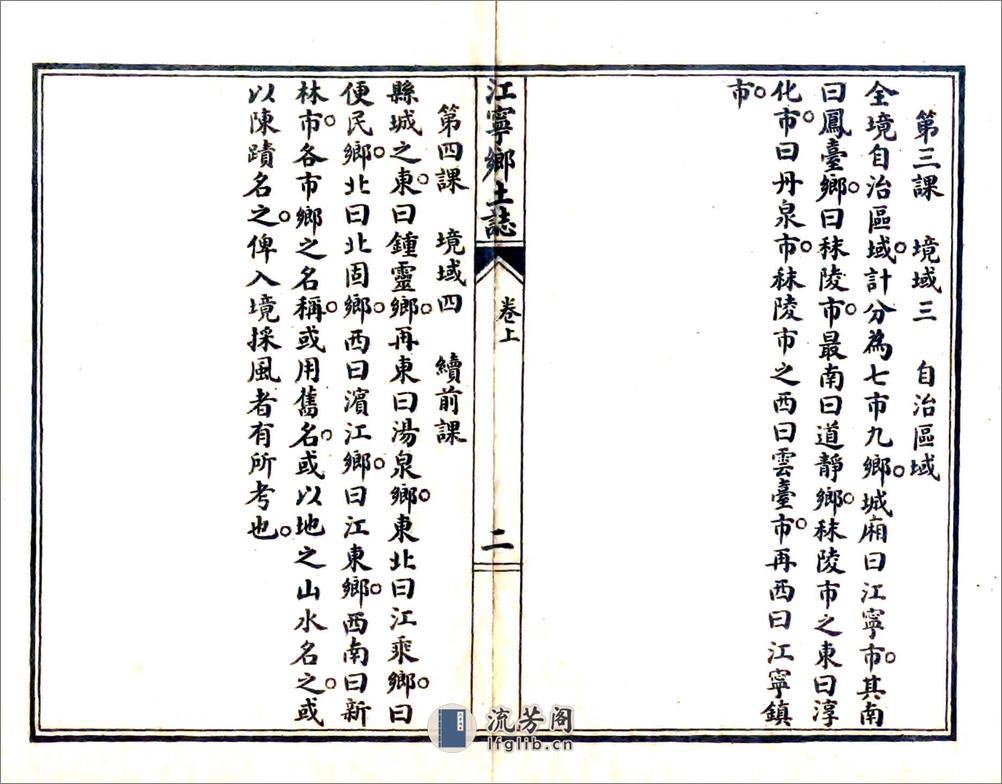 第三課　境域三　自治區域
全境自治區域。計分為七市九鄉。城廂曰江寧市。其南
曰鳳臺鄉。曰秣陵市。最南曰道靜鄉。秣陵市之東曰淳
化市。曰丹泉市。秣陵市之西曰雲臺市。再西曰江寧鎮
市。
江寧鄉土誌　卷上　二
第四課　境域四　續前課
縣城之東。曰鍾靈鄉。再東曰湯泉鄉。東北曰江乘鄉。曰
便民鄉。北曰北固鄉。西曰濱江鄉。曰江東鄉。西南曰新
林市。各市鄉之名稱。或用舊名。或以地之山水名之。或
以陳蹟名之。俾入境採風者有所考也。
流芳阁
lfglib.cn